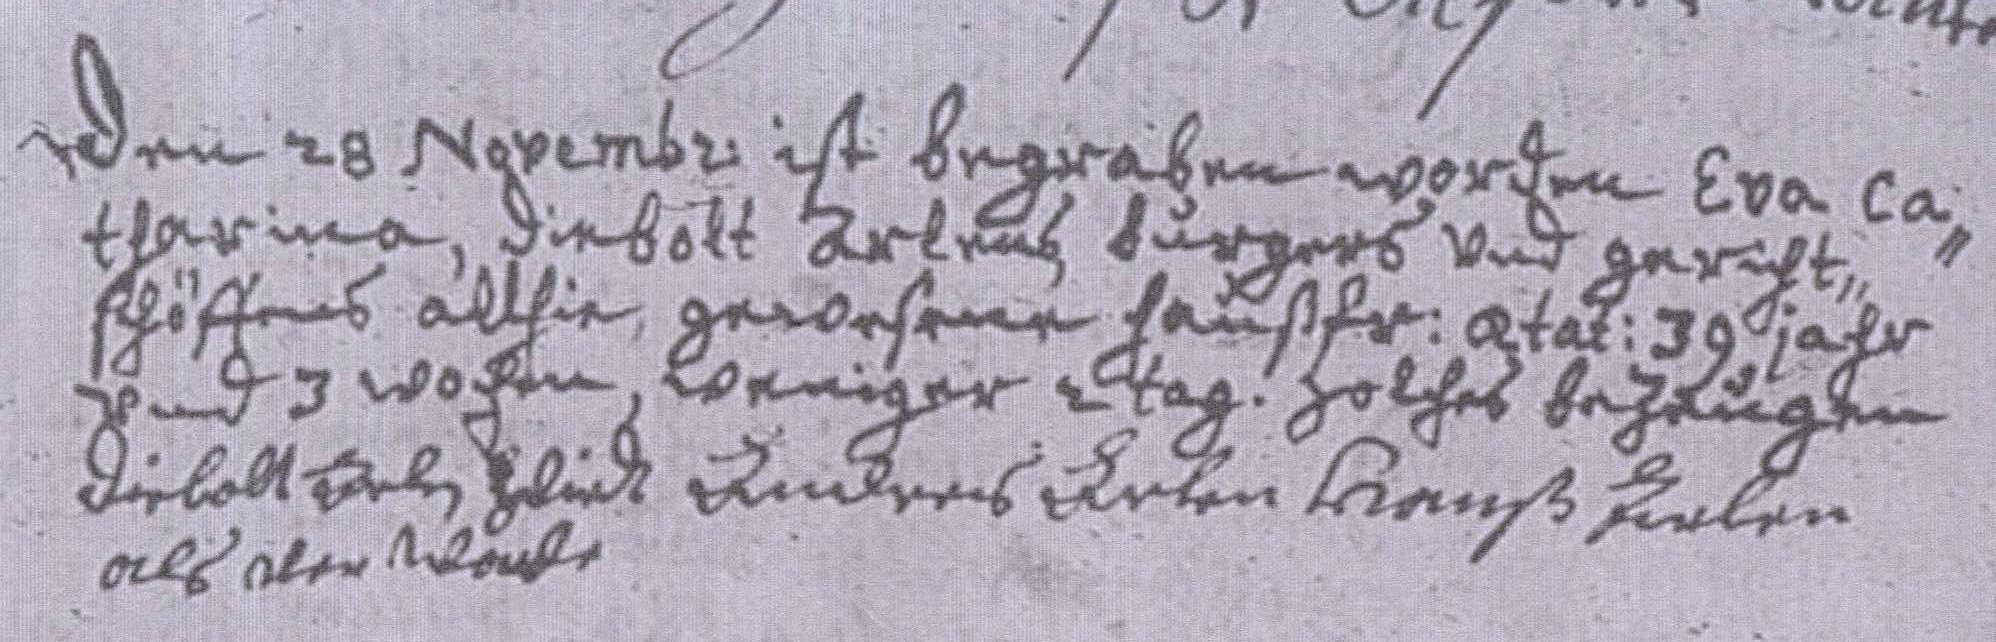 Den 28 Novembr: ist begraben worden Eva Ca„
tharina, Diebolt Arlens, burgers und gericht„
schöffens allhie, gewesene haußfr: ætat: 39 jahr
und 3 wochen, weniger 2 tag. Solches bezeugen
Diebolt Andres Arlen Hanß
als der